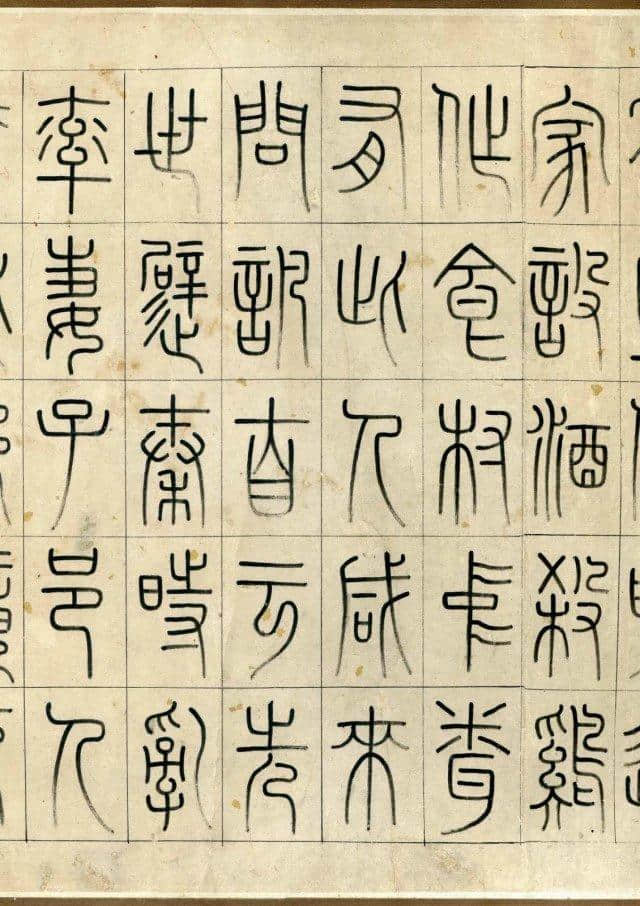 家設酒殺雞
作食村中聞
有此人咸來
問訊自云先
世避秦時亂
率妻子邑人